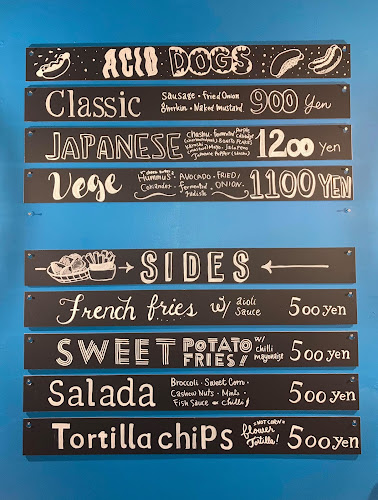 ACID DOGS
Classic Sausage · Fried Onion 900 Yen
Gherkin · Naked Mustard
JAPANESE Chashu · fermented purple cabbage 1200 yen
Bonito Flakes
Mayo · Jalapeno
Japanese Pepper
Vege Hummus · AVOCADO · FRIED 1100 YEN
Coriander · fermented ONION ·
radish
SIDES
French fries w/ aioli 500 yen
sauce
SWEET POTATO w/ 500 yen
FRIES! chilli
mayonnaise
Salada Broccoli · Sweet Corn · 500 yen
Cashew Nuts · Mint ·
Fish Sauce & Chilli!
Tortilla chips *NOT CORN* 500 yen
flower
Tortilla!